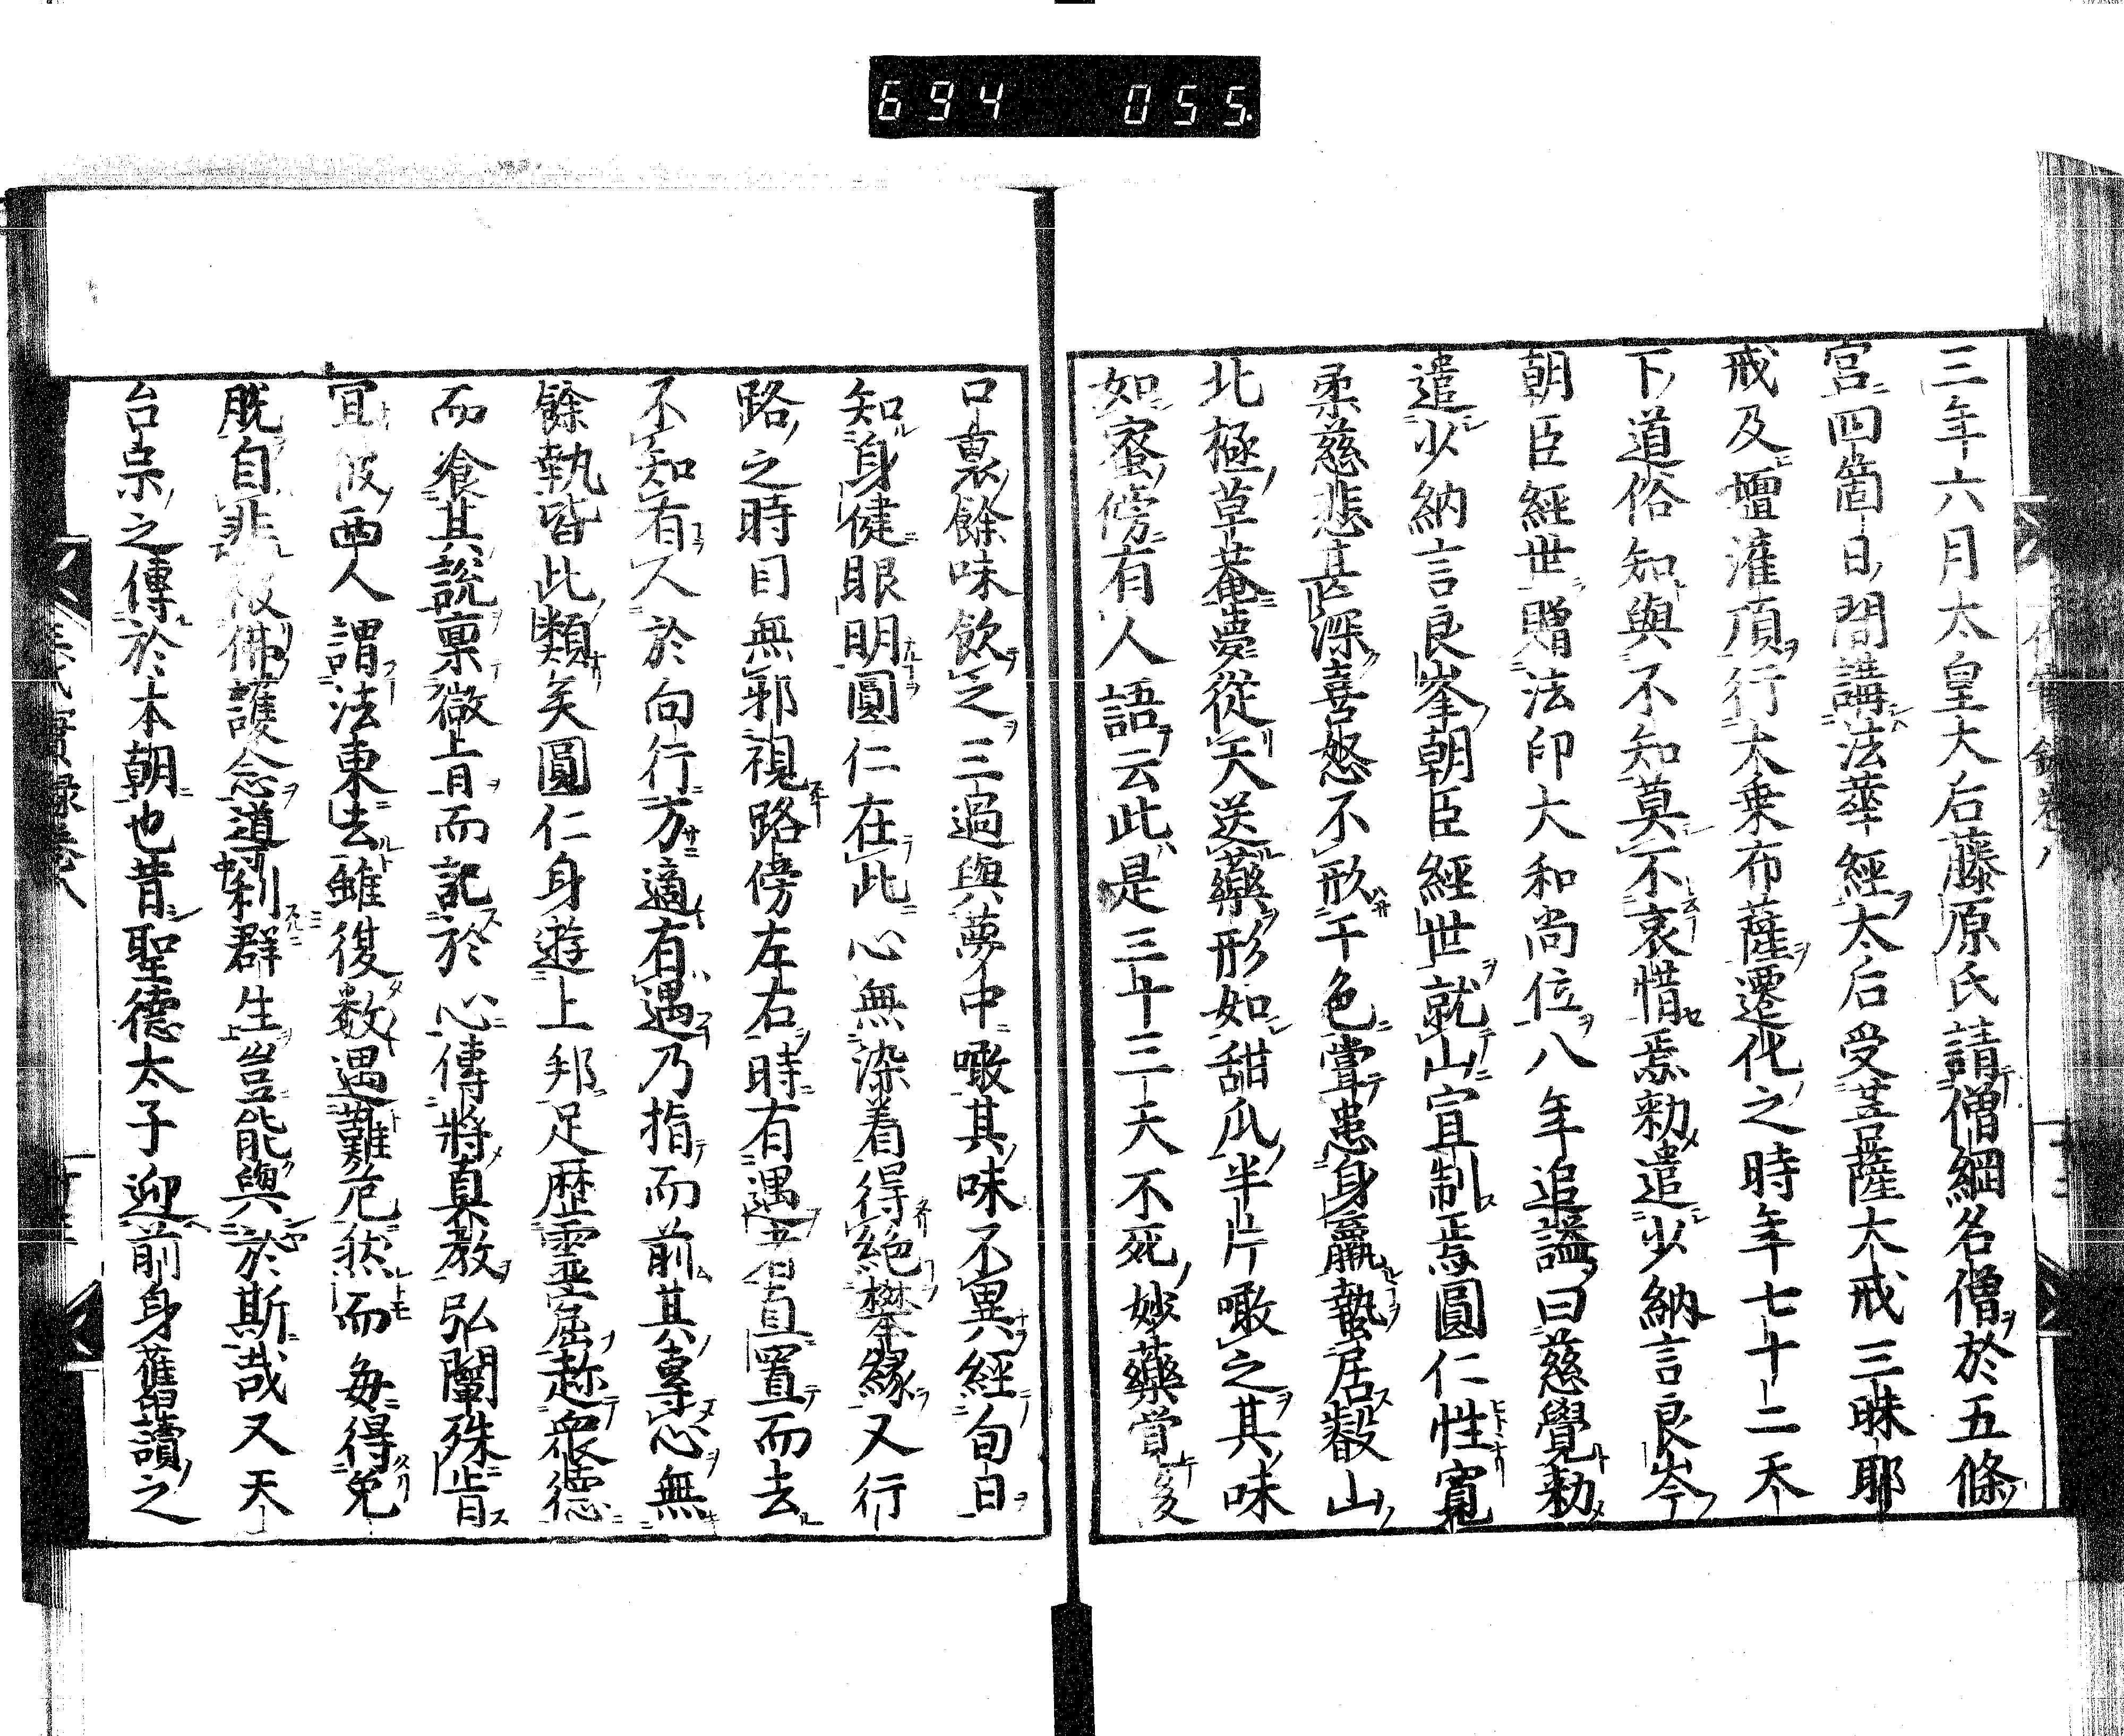 694 055.
三年六月太皇大后藤原氏請僧綱名僧於五條
宮四箇日間講法華經太后受菩薩大戒三昧耶
戒及壇灌頂行大乗布薩遷化之時年七十二天
下道俗知與不知莫不哀惜焉勑遣少納言良岑
朝臣經世贈法印大和尚位八年追謚曰慈覺勑
遣少納言良峯朝臣經世就山宣制焉圓仁性寛
柔慈悲甚深喜怒不形于色嘗患身羸蟄居叡山
北極草菴夢從天送藥形如甜瓜半片噉之其味
如蜜傍有人語云此是三十三天不死妙藥甞
口裏餘味飲之三過與夢中噉其味不異經旬自
知身健眼明圓仁在此心無染着得絶攀縁又行
路之時目無邪視路傍左右時有遇者直置而去
不知有人於向行方適有遇乃指而前其專心無
餘執皆此類矣圓仁身遊上邦足歴霊崛趂衆德
而飡其説稟微旨而記於心傳將真教弘闡殊旨
宜彼両人謂法東去雖復数遇艱危然而毎得免
脱自非被佛護念道利群生豈能與於斯哉又天
台宗之傳於本朝也昔聖德太子迎前身舊讀之
實録卷八